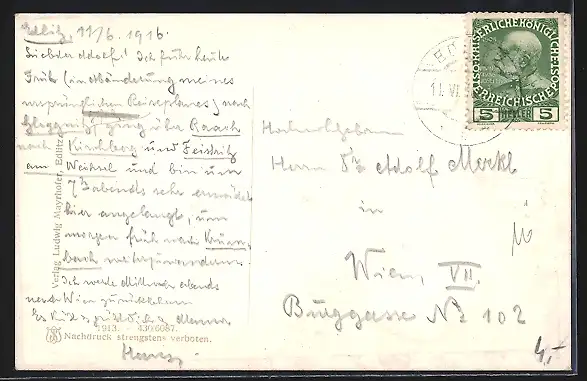 Edlitz, 11/6. 1916.
Lieber Adolf! Ich fuhr heute
Früh (in Abänderung meines
ursprünglichen Reiseplanes) nach
Gloggnitz, ging über Raach
nach Kirchberg und Feistritz
am Wechsel und bin um
7h abends sehr ermüdet
hier angelangt, um
morgen früh nach Krumbach
weiterzuwandern.
Ich werde Mittwoch abends
nach Wien zurückkehren.
Es küßt u. grüßt dich u. Mama
Verlag Ludwig Mayrhofer, Edlitz
1913. - 430/6087.
Nachdruck strengstens verboten.
Hochwohlgeboren
Herrn Dr. Adolf Merkl
in
Wien, VII.
Burggasse No 102
KAISERLICHE KÖNIGLICHE
ÖSTERREICHISCHE POST
5 HELLER 5
4,-